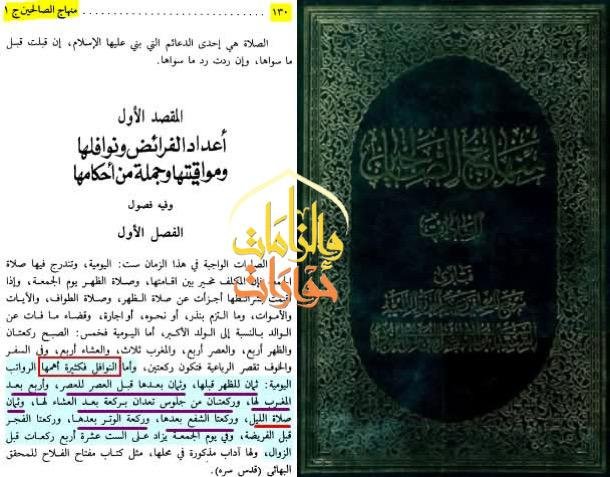 ١٣٠ . . . . . . . . . . . . . . . . . . . . . . . . . . . . . . منهاج الصالحين ج ١
الصلاة هي إحدى الدعائم التي بني عليها الإسلام، إن قبلت قبل
ما سواها، وإن ردت رد ما سواها.
المقصد الأول
أعداد الفرائض ونوافلها
ومواقيتها وجملة من أحكامها
وفيه فصول
الفصل الأول
الصلوات الواجبة في هذا الزمان ست: اليومية، وتندرج فيها صلاة
الجمعة فإن المكلف مخير بين اقامتها، وصلاة الظهر يوم الجمعة، وإذا
اقيمت بشرائطها أجزأت عن صلاة الظهر، وصلاة الطواف، والآيات
والأموات، وما التزم بنذر، أو نحوه، أو اجارة، وقضاء ما فات عن
الوالد بالنسبة إلى الولد الأكبر، أما اليومية فخمس: الصبح ركعتان
والظهر أربع، والعصر أربع، والمغرب ثلاث، والعشاء أربع، وفي السفر
والخوف تقصر الرباعية فتكون ركعتين، وأما النوافل فكثيرة أهمها الرواتب
اليومية: ثمان للظهر قبلها، وثمان بعدها قبل العصر للعصر، وأربع بعد
المغرب لها، وركعتان من جلوس تعدان بركعة بعد العشاء لها، وثمان
صلاة الليل، وركعتا الشفع بعدها، وركعة الوتر بعدها، وركعتا الفجر
قبل الفريضة، وفي يوم الجمعة يزاد على الست عشرة أربع ركعات قبل
الزوال، ولها آداب مذكورة في محلها، مثل كتاب مفتاح الفلاح للمحقق
البهائي (قدس سره).
حوارات
والزامات
منهاج الصالحين
العبادات
فتاوى